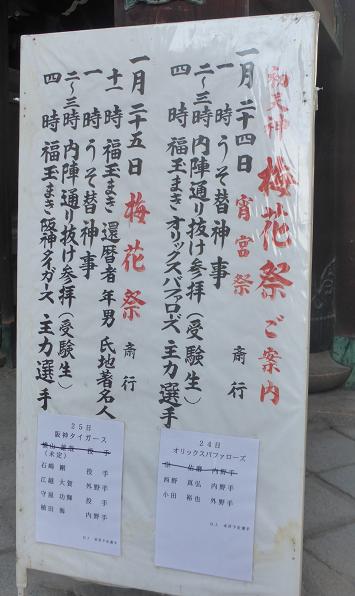 初天神 梅花祭 ご案内
一月二十四日 宵宮祭 斎行
一時 うそ替神事
二〜三時 内陣通り抜け参拝(受験生)
四時 福玉まき オリックスバファローズ 主力選手
一月二十五日 梅花祭 斎行
十一時 福玉まき 還暦者 年男 氏地著名人
一時 うそ替神事
二〜三時 内陣通り抜け参拝(受験生)
四時 福玉まき 阪神タイガース 主力選手
24日
オリックスバファローズ
佑磨 内野手
西野 真弘 内野手
小田 裕也 外野手
以上 来祥予定選手
25日
阪神タイガース
投手
(未定)
石崎 剛 投手
江越 大賀 外野手
守屋 功輝 投手
植田 海 内野手
以上 来祥予定選手